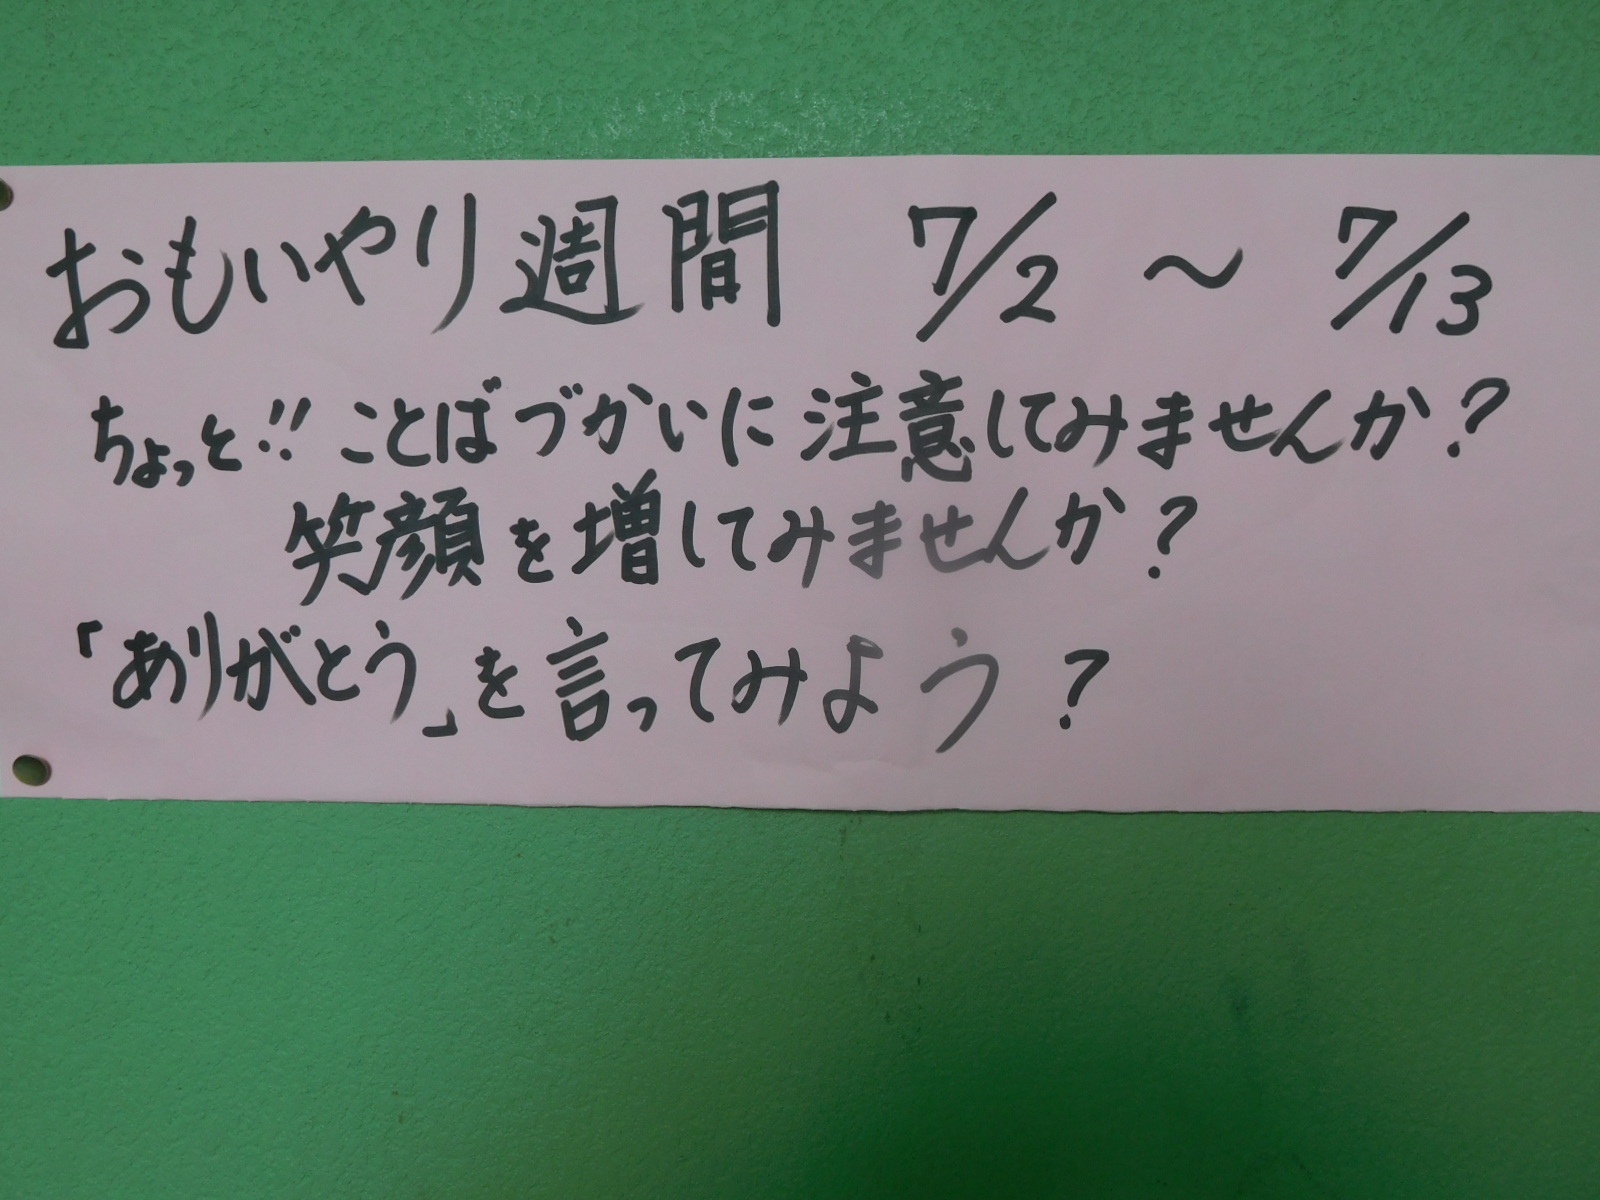 おもいやり週間 7/2 〜 7/13
ちょっと!! ことばづかいに注意してみませんか?
笑顔を増してみませんか?
「ありがとう」を言ってみよう?